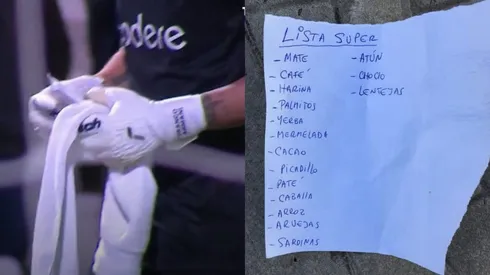 odere
LISTA SUPER
- MATE
- CAFÉ
- HARINA
- PALMITOS
- YERBA
- MERMELADA
- CACAO
- PICADILLO
- PATÉ
- CABALLA
- ARROZ
- ARVEJAS
- SARDINAS
- ATÚN
- CHOCLO
- LENTEJAS